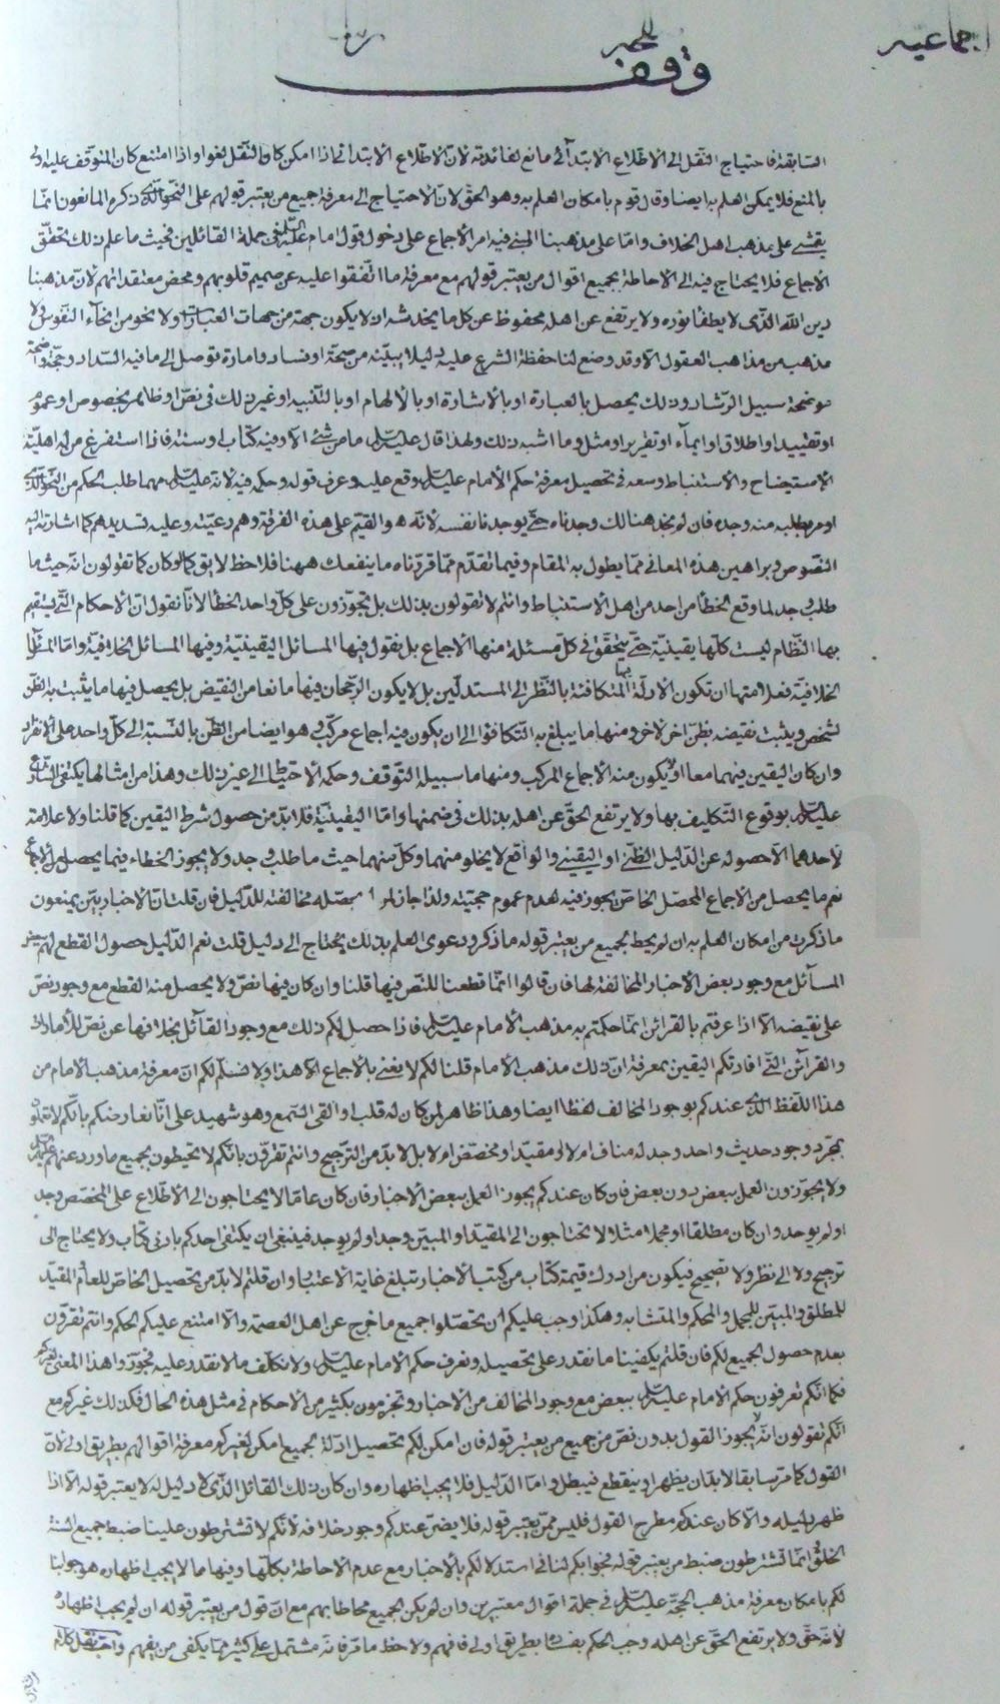 اجماعيه
وقف
السابقة فاحتياج النقل الى الاطلاع الابتدائى مانع لفائدته لان الاطلاع الابتدائى اذا امكن كان النقل لغوا واذا امتنع كان المتوقف عليه اولى
بالمنع فلا يمكن العلم به ايضا وقال قوم بامكان العلم به وهو الحق لان الاحتياج الى معرفة جميع من يعتبر قولهم على النحو الذى ذكره المانعون انما
يتمشى على مذهب اهل الخلاف واما على مذهبنا المبنى فيه امر الاجماع على دخول قول امام عليه السلام فى جملة القائلين فحيث ما علم ذلك تحقق
الاجماع فلا يحتاج فيه الى الاحاطة بجميع اقوال من يعتبر قولهم مع معرفة ما اتفقوا عليه عن صميم قلوبهم ومحض معتقداتهم لان مذهبنا
دين الله الذى لا يطفأ نوره ولا يرتفع عن اهله محفوظ عن كل ما يخدشه اذ لا يكون جهة من جهات العبارات ولا نحو من انحاء النفوس ولا
مذهب من مذاهب العقول الا وقد وضع لنا حفظة الشرع عليه دليلا يبينه من صحة او فساد وامارة توصل الى ما فيه السداد وحجة واضحة
موضحة سبيل الرشاد وذلك يحصل بالعبارة او بالاشارة او بالالهام او بالتنبيه او غير ذلك فى نص او ظاهر بخصوص او عموم
او تقييد او اطلاق او ايماء او تقرير او مثل وما اشبه ذلك ولهذا قال عليه السلام ما من شئ الا وفيه كتاب او سنة فاذا استفرغ من له اهلية
الاستيضاح والاستنباط وسعه فى تحصيل معرفة حكم الامام عليه السلام وقع عليه وعرف قوله وحكمه فيه لانه عليه السلام مهما طلب الحكم من النحو الذى
امر بطلبه منه وجده فان لم يجد هنالك وجدناه حتى يوجدنا نفسه لانه هو القيم على هذه الفرقة وهم رعيته وعليه تسديدهم كما اشارت اليه
النصوص وبراهين هذه المعانى مما يطول به المقام وفيما تقدم مما قررناه ما ينفعك ههنا فلاحظ لا يق كان كما تقولون انه حيث ما
طلب وجد لما وقع الخطأ من احد من اهل الاستنباط وانتم لا تقولون بذلك بل تجوزون على كل واحد الخطأ لانا نقول ان الاحكام التى يستقيم
بها النظام ليست كلها يقينية حتى يتحقق فى كل مسئلة منها الاجماع بل نقول فيها المسائل اليقينية وفيها المسائل الخلافية واما المسائل
الخلافية فعلامتها ان تكون الادلة المتكافئة بالنظر الى المستدلين بل لا يكون الرجحان فيها مانعا من النقيض بل يحصل فيها ما يثبت به الظن
لشخص ويثبت نقيضه بظن اخر لاخر ومنها ما يبلغ به التكافؤ الى ان يكون فيه اجماع مركب وهو ايضا من الظن بالنسبة الى كل واحد على الانفراد
وان كان اليقين فيهما معا او يكون منه الاجماع المركب ومنها ما سبيله التوقف وحكمه الاحتياط الى غير ذلك وهذا من امثالها يكتفى الشارع
عليه السلام بوقوع التكليف بها ولا يرتفع الحق عن اهله بذلك فى ضمنها واما اليقينية فلا بد من حصول شرط اليقين كما قلنا ولا علامة
لاحدهما الا حصوله عن الدليل الظنى او اليقينى والواقع لا يخلو منهما وكل منهما حيث ما طلب وجد ولا يجوز الخطاء فيما يحصل من الاجماع
نعم ما يحصل من الاجماع المحصل الخاص يجوز فيه لعدم عموم حجيته ولذا جاز لمن يحصله مخالفته للدليل فان قلت ان الاخباريين يمنعون
ما ذكرت من امكان العلم به ان لم يحط بجميع من يعتبر قوله ما ذكر ودعوى العلم بذلك يحتاج الى دليل قلت نعم الدليل حصول القطع لهم ببعض
المسائل مع وجود بعض الاخبار المخالفة لها فان قالوا انما قطعنا للنص فيها قلنا وان كان فيها نص ولا يحصل منه القطع مع وجود نص
على نقيضه الا اذا عرفتم بالقرائن انما حكمتم به مذهب الامام عليه السلام فاذا حصل لكم ذلك مع وجود القائل بخلافها عن نص للامارات
والقرائن التى افادتكم اليقين بمعرفة ان ذلك مذهب الامام قلنا لكم لا نعنى بالاجماع الا هذا ولا نسلم لكم ان معرفة مذهب الامام من
هذا اللفظ الذى عندكم بوجود المخالف لفظا ايضا وهذا ظاهر لمن كان له قلب او القى السمع وهو شهيد على انا نعارضكم بانكم لا تعملون
بمجرد وجود حديث واحد وجد له مناف ام لا له مقيد او مخصص ام لا بل لا بد من الترجيح وانتم تقرون بانكم لا تحيطون بجميع ما ورد عنهم عليهم السلام
ولا يجوزون العمل ببعض دون بعض فان كان عندكم يجوز العمل ببعض الاخبار فان كان عاما لا يحتاجون الى الاطلاع على المخصص وجد
او لم يوجد وان كان مطلقا او مجملا مثلا لا تحتاجون الى المقيد او المبين وجد او لم يوجد فينبغى ان يكتفى احدكم بادنى كتاب ولا يحتاج الى
ترجيح ولا الى نظر ولا تصحيح فيكون من ادرك قيمة كتاب من كتب الاخبار تبلغ غاية الاعتبار وان قلتم لا بد من تحصيل الخاص للعام المقيد
للمطلق والمبين للمجمل والمحكم والمتشابه وهكذا وجب عليكم ان تحصلوا جميع ما خرج عن اهل العصمة والا امتنع عليكم الحكم وانتم تقرون
بعدم حصول الجميع لكم فان قلتم يكفينا ما نقدر على تحصيله ونعرف حكم الامام عليه السلام ولا نكلف ما لا نقدر عليه فجوزوا هذا المعنى لغيركم
فكما انكم تعرفون حكم الامام عليه السلام ببعض مع وجود المخالف من الاخبار وتجزمون بكثير من الاحكام فى مثل هذه الحال فكذلك غيركم مع
انكم تقولون انه لا يجوز القول بدون نص من جميع من يعتبر قوله فان امكن لكم تحصيل ادلة الجميع امكن لغيركم معرفة اقوالهم بطريق اولى لان
القول كما مر سابقا لابد ان يظهر او ينقطع فيبطل واما الدليل فلا يجب اظهاره وان كان ذلك القائل الذى لا دليل له لا يعتبر قوله الا اذا
ظهر دليله والا كان عندكم مطرح القول فليس ممن يعتبر قوله فلا يضر عندكم وجود خلافه لانكم لا تشترطون علينا ضبط جميع السنة
الخلق انما تشترطون ضبط من يعتبر قوله فجوابكم لنا فى استدلالكم بالاخبار مع عدم الاحاطة بكلها وفيها ما لا يجب اظهاره هو جوابنا
لكم بامكان معرفة مذهب الحجة عليه السلام فى جملة اقوال معتبرين وان لم يكن الجميع محاطا بهم مع ان قول من يعتبر قوله ان لم يجب اظهاره
لانه حق ولا يرتفع الحق عن اهله وجب الحكم بفسـ بطريق اولى فافهم ولاحظ ما مر فانه مشتمل على كثير مما يكفى من يفهم واحب نقل كلام